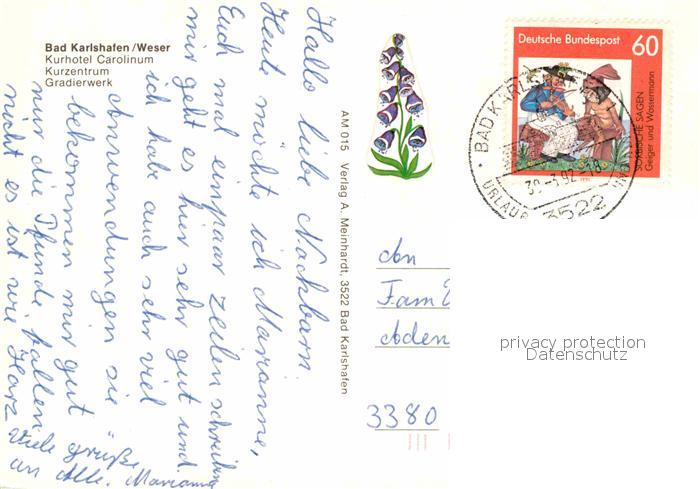 Bad Karlshafen/Weser
Kurhotel Carolinum
Kurzentrum
Gradierwerk
Hallo liebe Nachbarn.
Heute möchte ich Marianne,
Euch mal einpaar Zeilen schreiben
mir geht es hier sehr gut und
ich habe auch sehr viel
Anwendungen sie
bekommen mir gut
nur die Pfunde fallen
nicht es ist wie Harz
Viele grüße
an Alle. Marianne
AM 015 Verlag A. Meinhardt, 3522 Bad Karlshafen
Deutsche Bundespost 60
SORBISCHE SAGEN
Geiger und Wassermann
BAD KARLS
30.-3.92.-18
URLAUB
3522
An
Fam
Aden
3380
privacy protection
Datenschutz